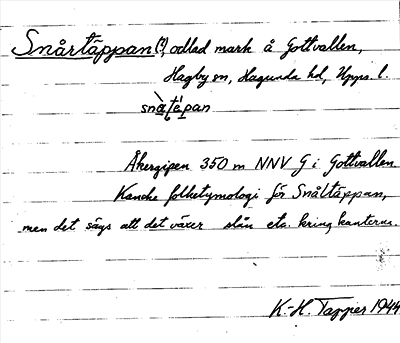 Snårtäppan(?), odlad mark å Gottvallen,
Hagby sn, Hagunda hd, Upps. l.
snà̀tä́pan
Åkergipen 350 m NNV G i Gottvallen
Kanske folketymologi för Snåltäppan,
men det sägs att det växer slån etc. kring kanterna.
K.-H. Tappier 1944